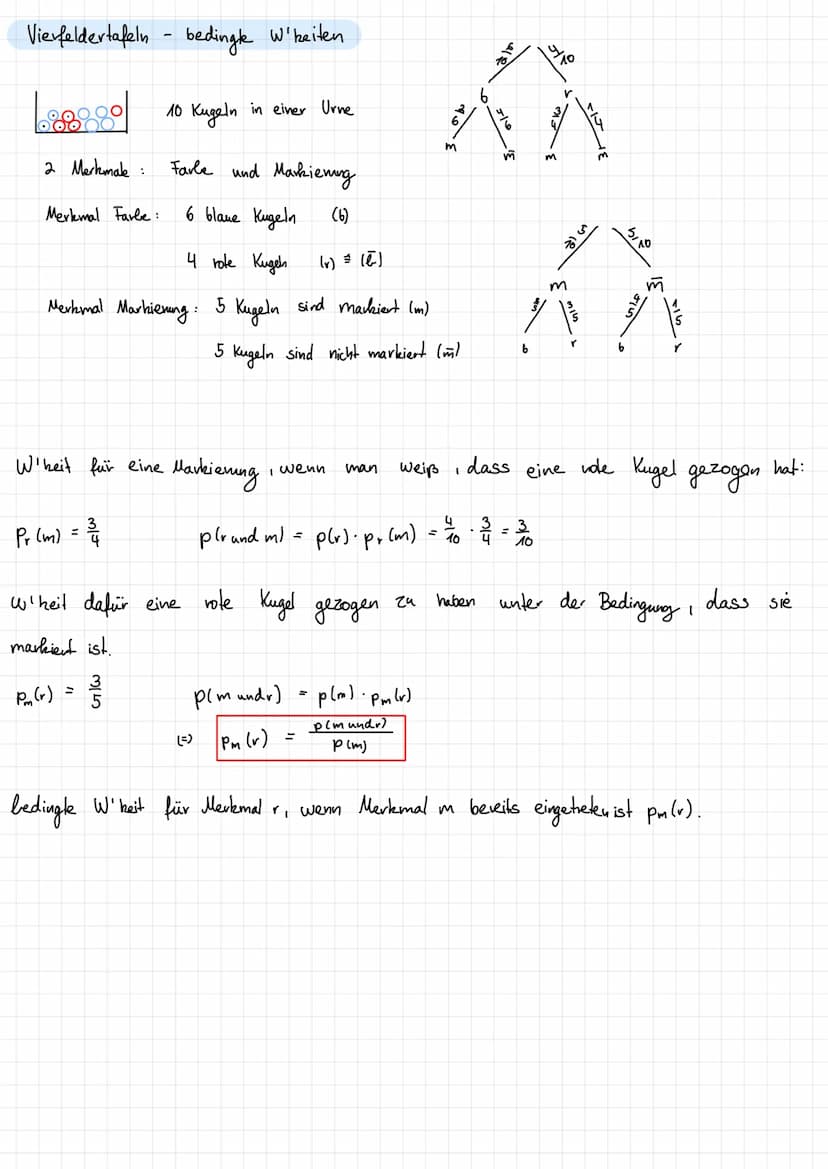 Vierfeldertafeln - bedingte W'heiten
6/10 4/10
b r
2/6 4/6 3/4 1/4
m m̄ m m̄
10 Kugeln in einer Urne
2 Merkmale : Farbe und Markierung
Merkmal Farbe : 6 blaue Kugeln (b)
4 rote Kugeln (r) ≙ (b̄)
5/10 5/10
m m̄
2/5 3/5 4/5 1/5
b r b r
Merkmal Markierung : 5 Kugeln sind markiert (m)
5 Kugeln sind nicht markiert (m̄)
W'heit für eine Markierung , wenn man weiß , dass eine rote Kugel gezogen hat:
Pr (m) = 3/4 p(r und m) = p(r) · pr (m) = 4/10 · 3/4 = 3/10
W'heit dafür eine rote Kugel gezogen zu haben unter der Bedingung , dass sie
markiert ist.
pm(r) = 3/5 p(m und r) = p(m) · pm(r)
(=) pm (r) = p(m und r)/p(m)
bedingte W'heit für Merkmal r , wenn Merkmal m bereits eingetreten ist pm(r).